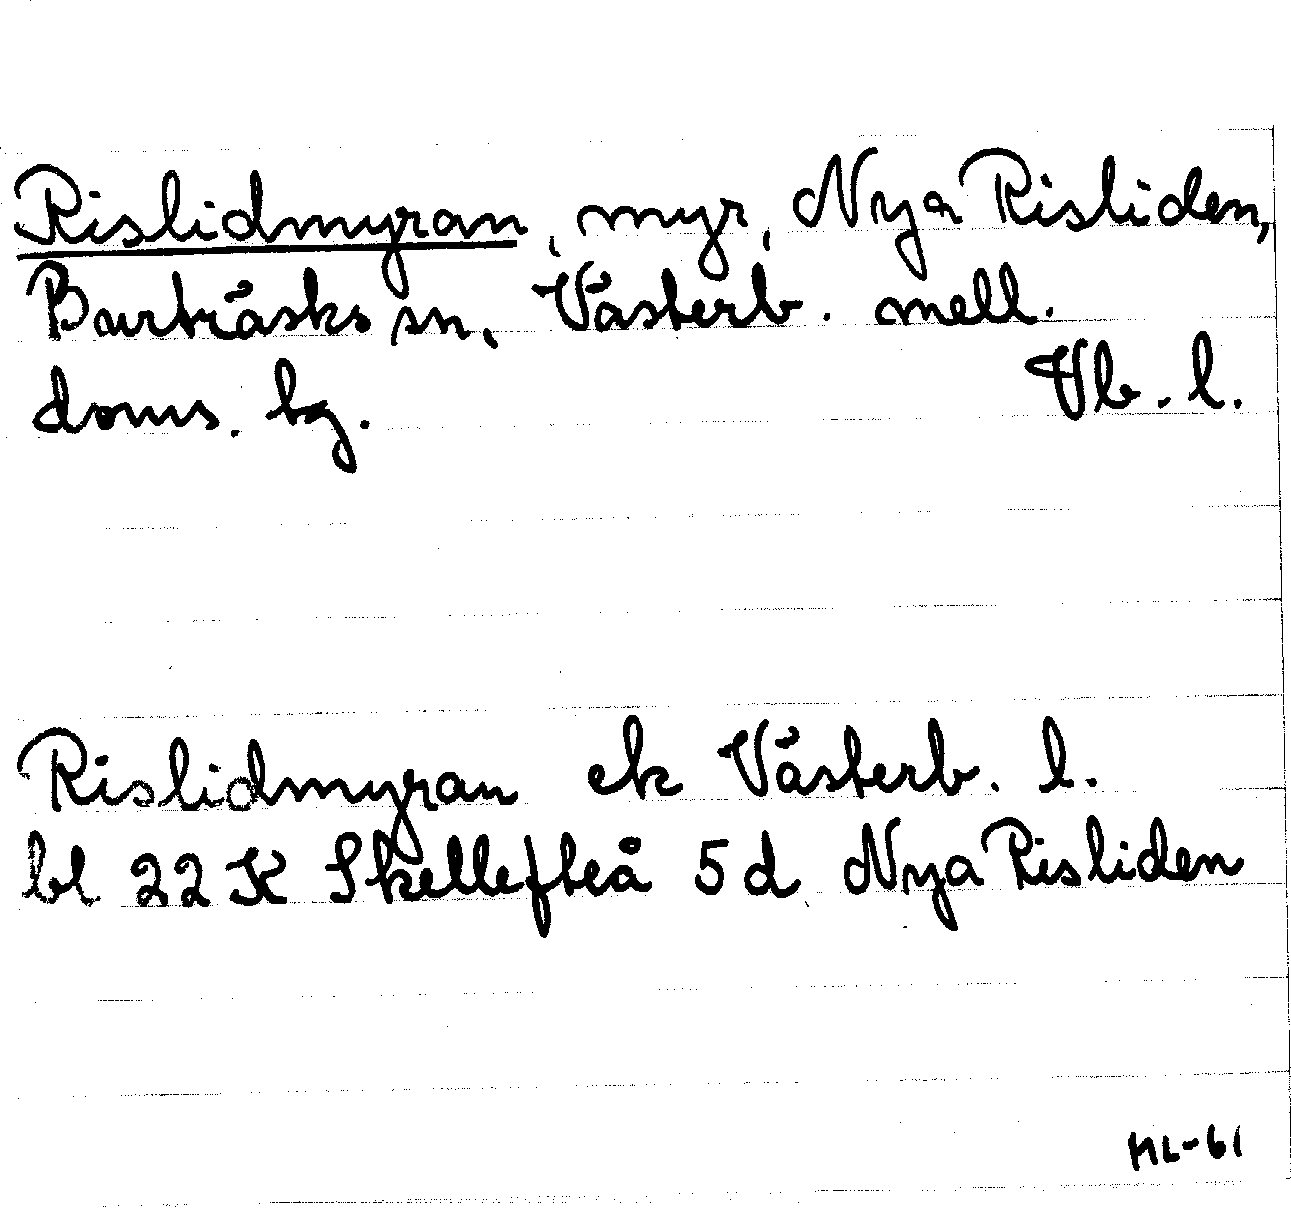 Rislidmyran, myr, Nya Risliden,
Burträsks sn, Västerb. mell.
doms. hg. Vb. l.
Rislidmyran ek Västerb. l.
bl 22 K Skellefteå 5 d Nya Risliden
ML-61